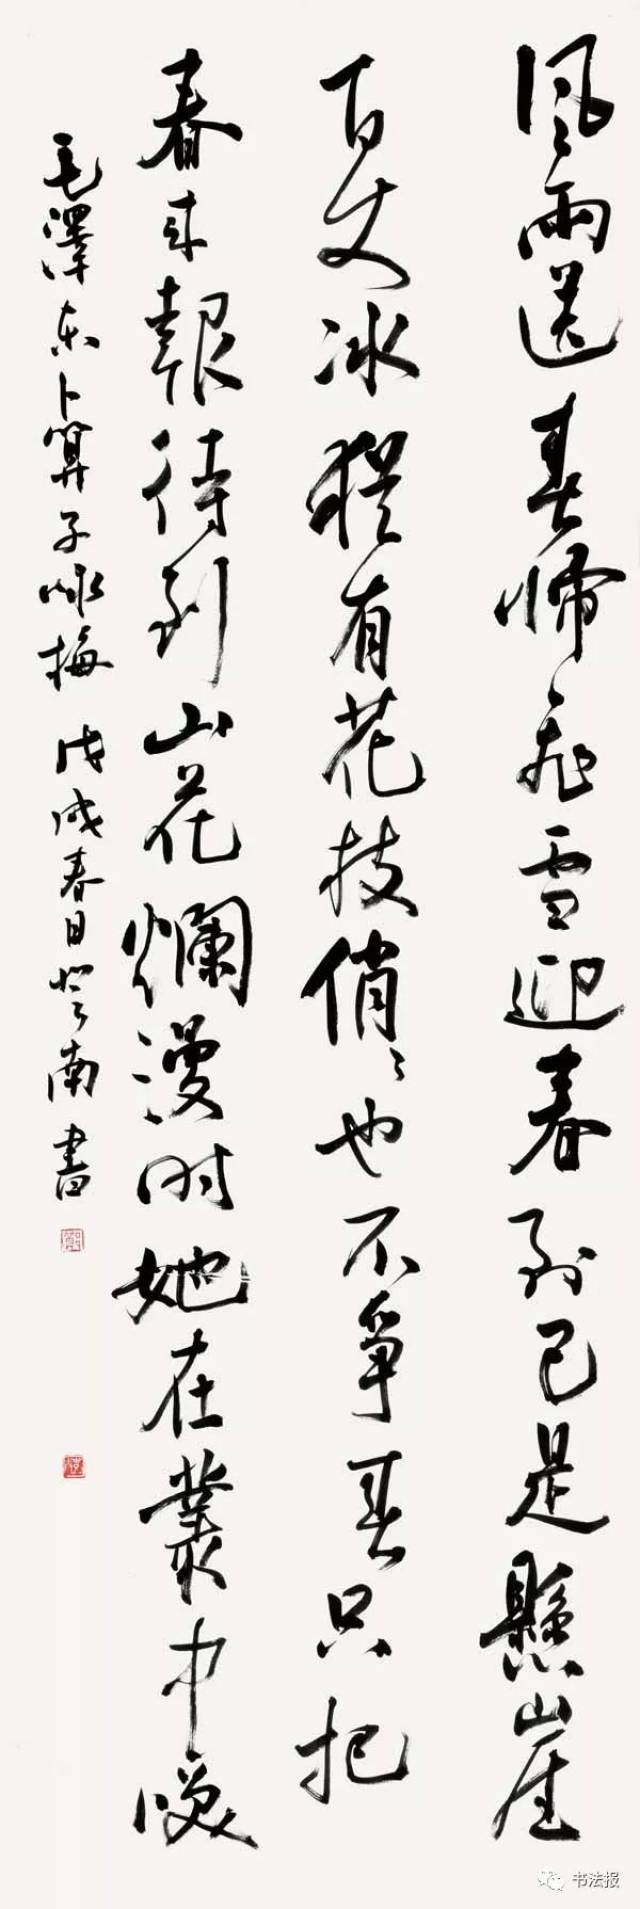 風雨送春歸飛雪迎春到已是懸崖
百丈冰猶有花技俏俏也不爭春只把
春来報待到山花爛漫时她在叢中咲
毛澤东卜算子咏梅 戊戌春日於南書
书法报